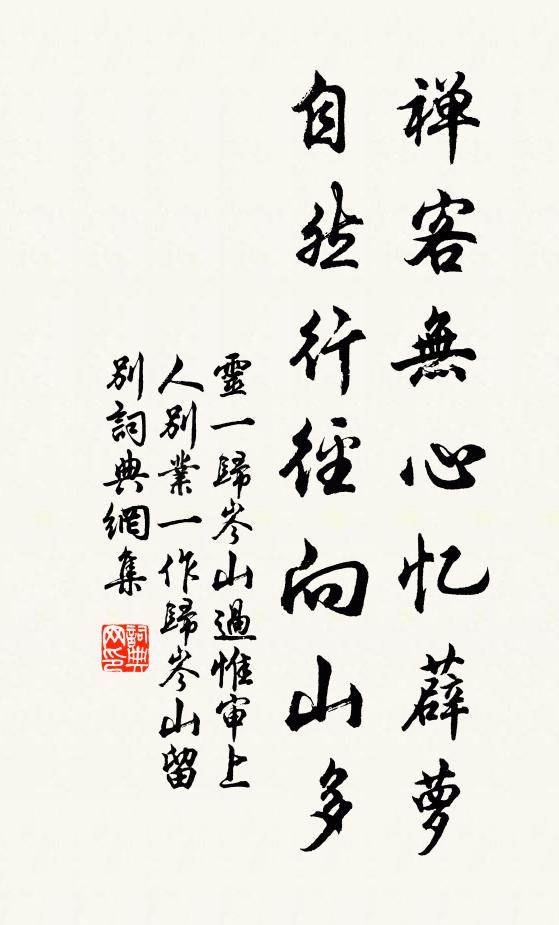 禅客無心忆薜萝
自然行径向山多
靈一歸岑山過惟审上
人别業一作歸岑山留
别詞典網集
詞典网印